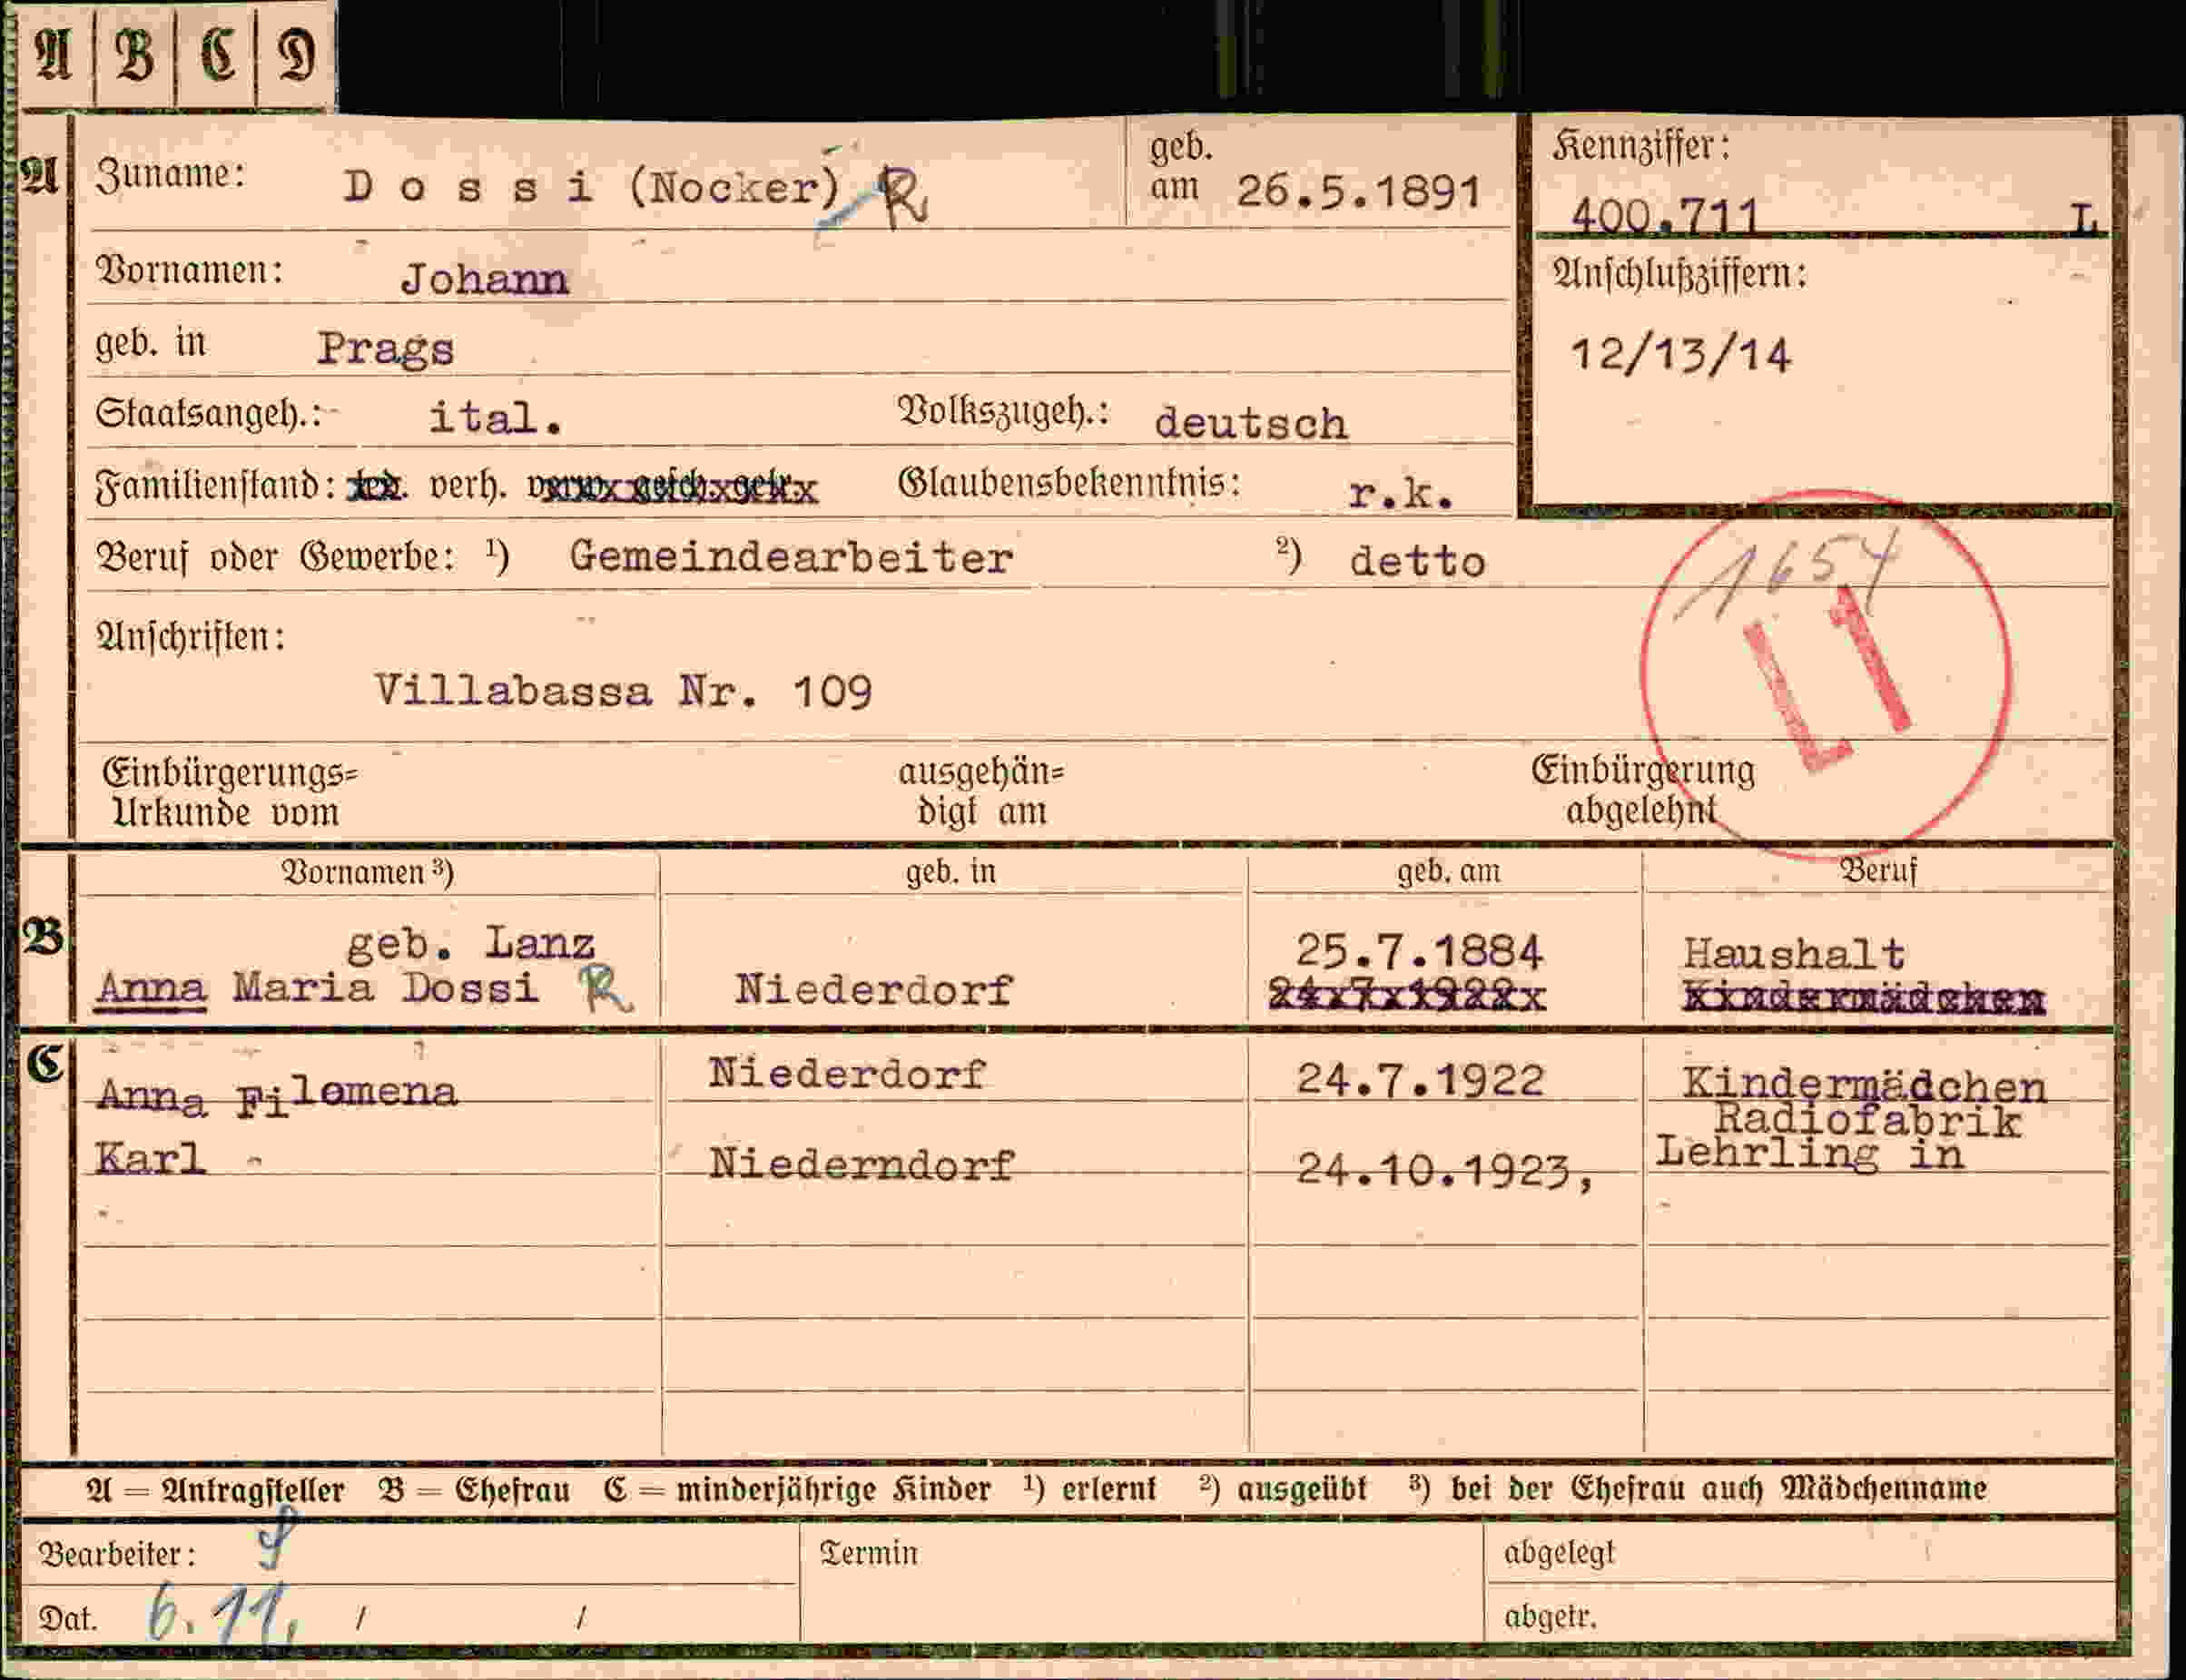 A B C D
A Zuname: Dossi (Nocker) R geb. am 26.5.1891 Kennziffer: 400.711 L
Vornamen: Johann Anschlußziffern:
geb. in Prags 12/13/14
Staatsangeh.: ital. Volkszugeh.: deutsch
Familienstand: verh. Glaubensbekenntnis: r.k.
Beruf oder Gewerbe: ¹) Gemeindearbeiter ²) detto 1654
Anschriften: L 1
Villabassa Nr. 109
Einbürgerungs= ausgehän= Einbürgerung
Urkunde vom digt am abgelehnt
Vornamen ³) geb. in geb. am Beruf
B geb. Lanz 25.7.1884 Haushalt
Anna Maria Dossi R Niederdorf 24.7.1922 Kindermädchen
C Anna Filomena Niederdorf 24.7.1922 Kindermädchen
Radiofabrik
Karl Niederndorf 24.10.1923, Lehrling in
A = Antragsteller B = Ehefrau C = minderjährige Kinder ¹) erlernt ²) ausgeübt ³) bei der Ehefrau auch Mädchenname
Bearbeiter: Termin abgelegt
Dat. 6.11. / / abgetr.